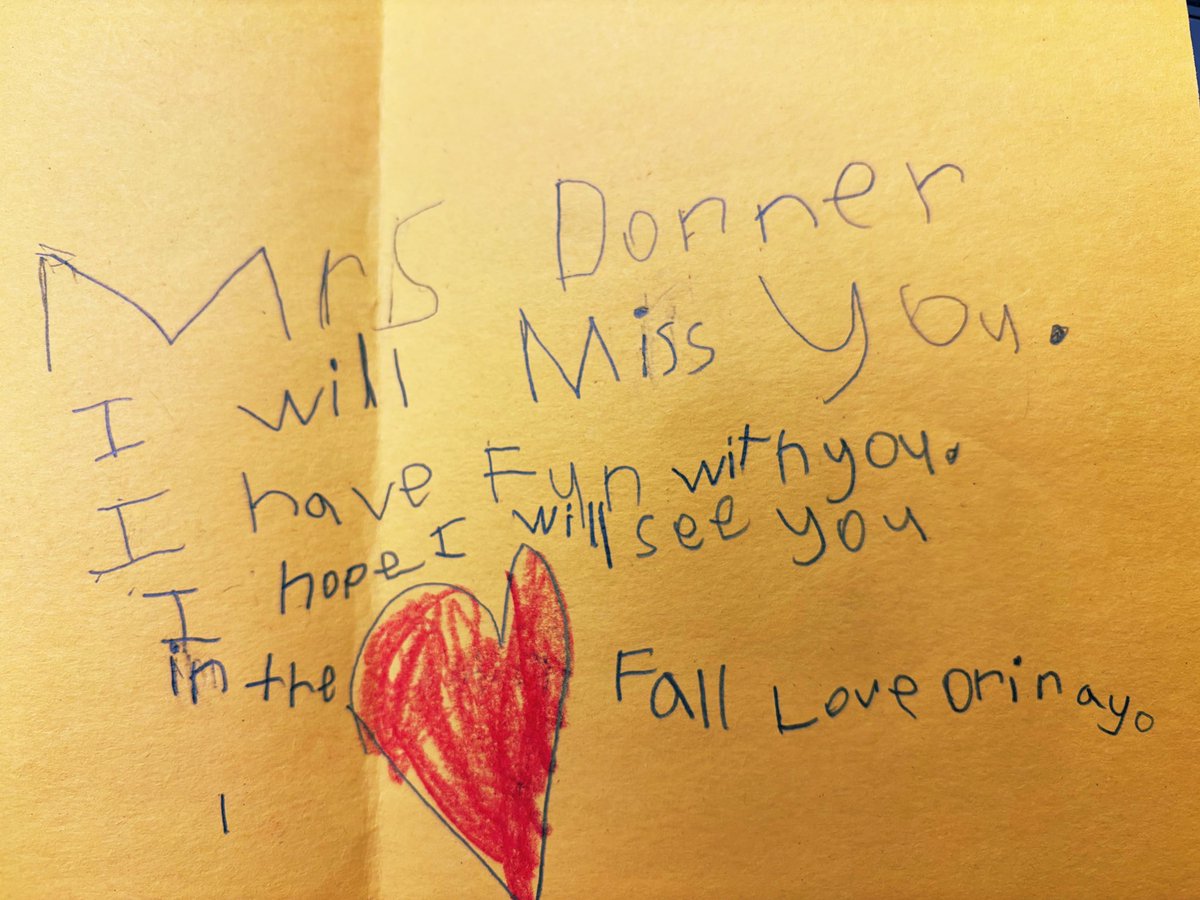 Mrs Donner
I will Miss You.
I have Fun with you.
I hope I will see you
in the Fall Love Orinayo